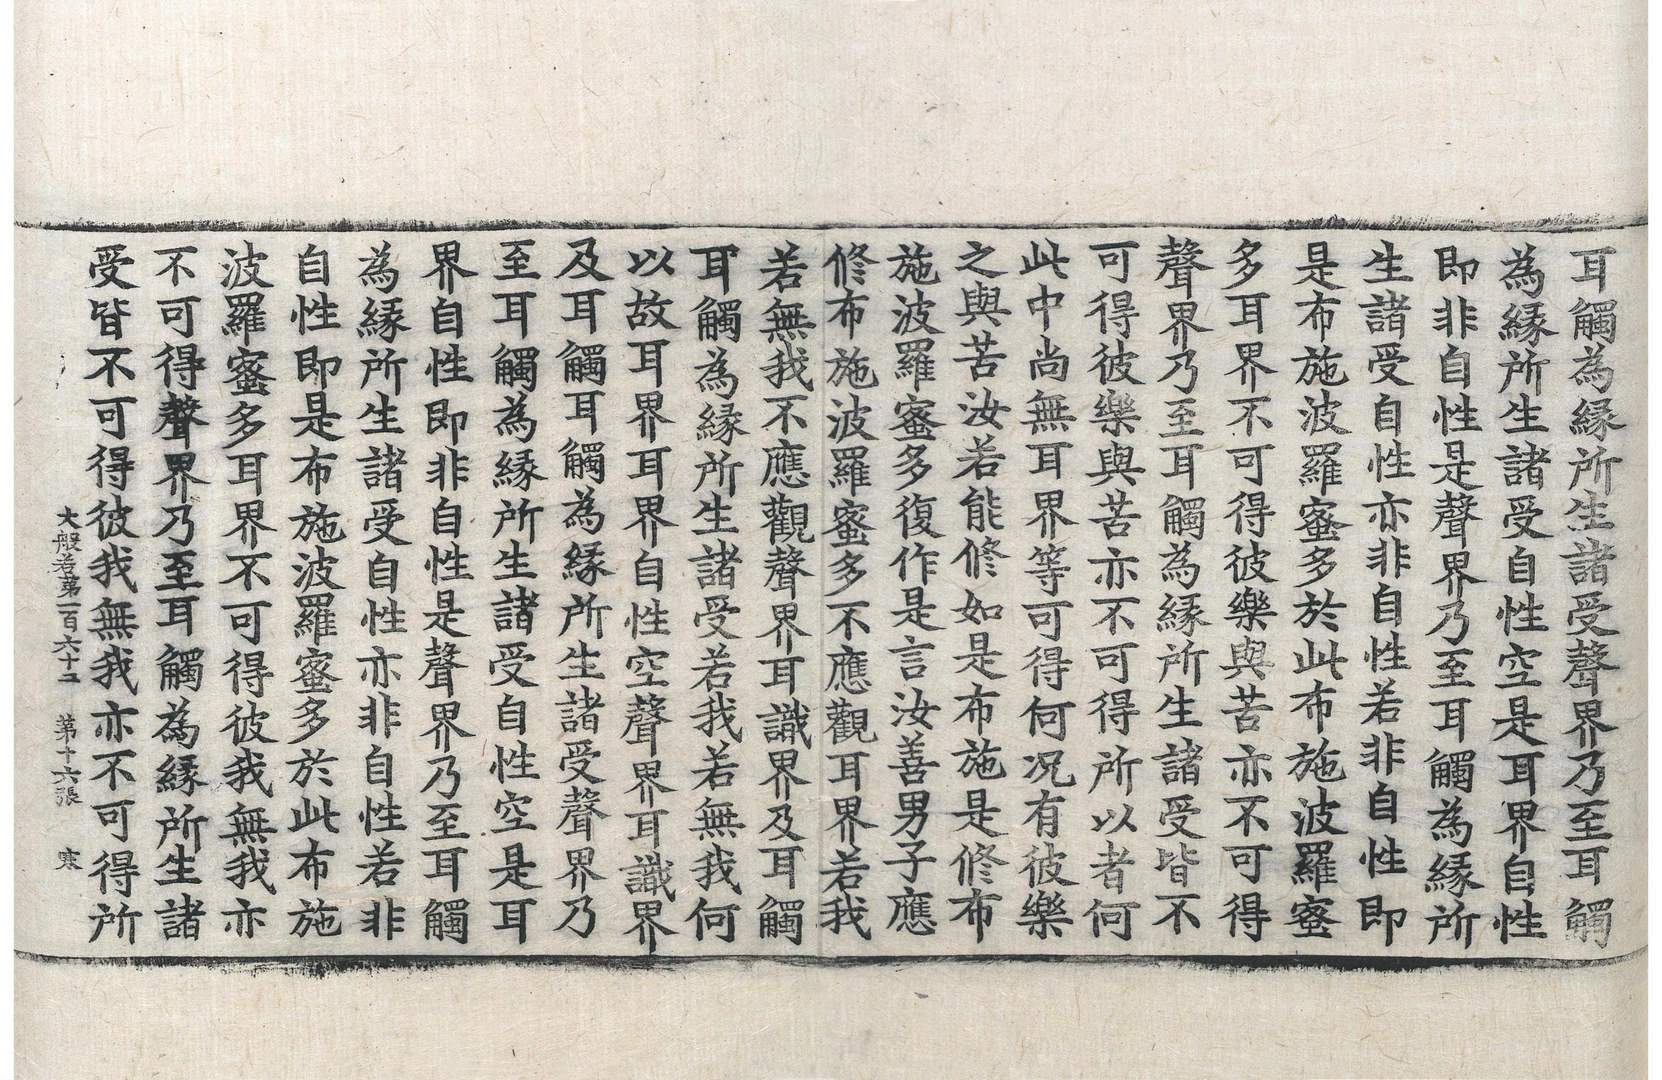 耳觸為緣所生諸受聲界乃至耳觸
為緣所生諸受自性空是耳界自性
即非自性是聲界乃至耳觸為緣所
生諸受自性亦非自性若非自性即
是布施波羅蜜多於此布施波羅蜜
多耳界不可得彼樂與苦亦不可得
聲界乃至耳觸為緣所生諸受皆不
可得彼樂與苦亦不可得所以者何
此中尚無耳界等可得何况有彼樂
之與苦汝若能修如是布施是修布
施波羅蜜多復作是言汝善男子應
修布施波羅蜜多不應觀耳界若我
若無我不應觀聲界耳識界及耳觸
耳觸為緣所生諸受若我若無我何
以故耳界耳界自性空聲界耳識界
及耳觸耳觸為緣所生諸受聲界乃
至耳觸為緣所生諸受自性空是耳
界自性即非自性是聲界乃至耳觸
為緣所生諸受自性亦非自性若非
自性即是布施波羅蜜多於此布施
波羅蜜多耳界不可得彼我無我亦
不可得聲界乃至耳觸為緣所生諸
受皆不可得彼我無我亦不可得所
大般若第一百六十二 第十六張 寒